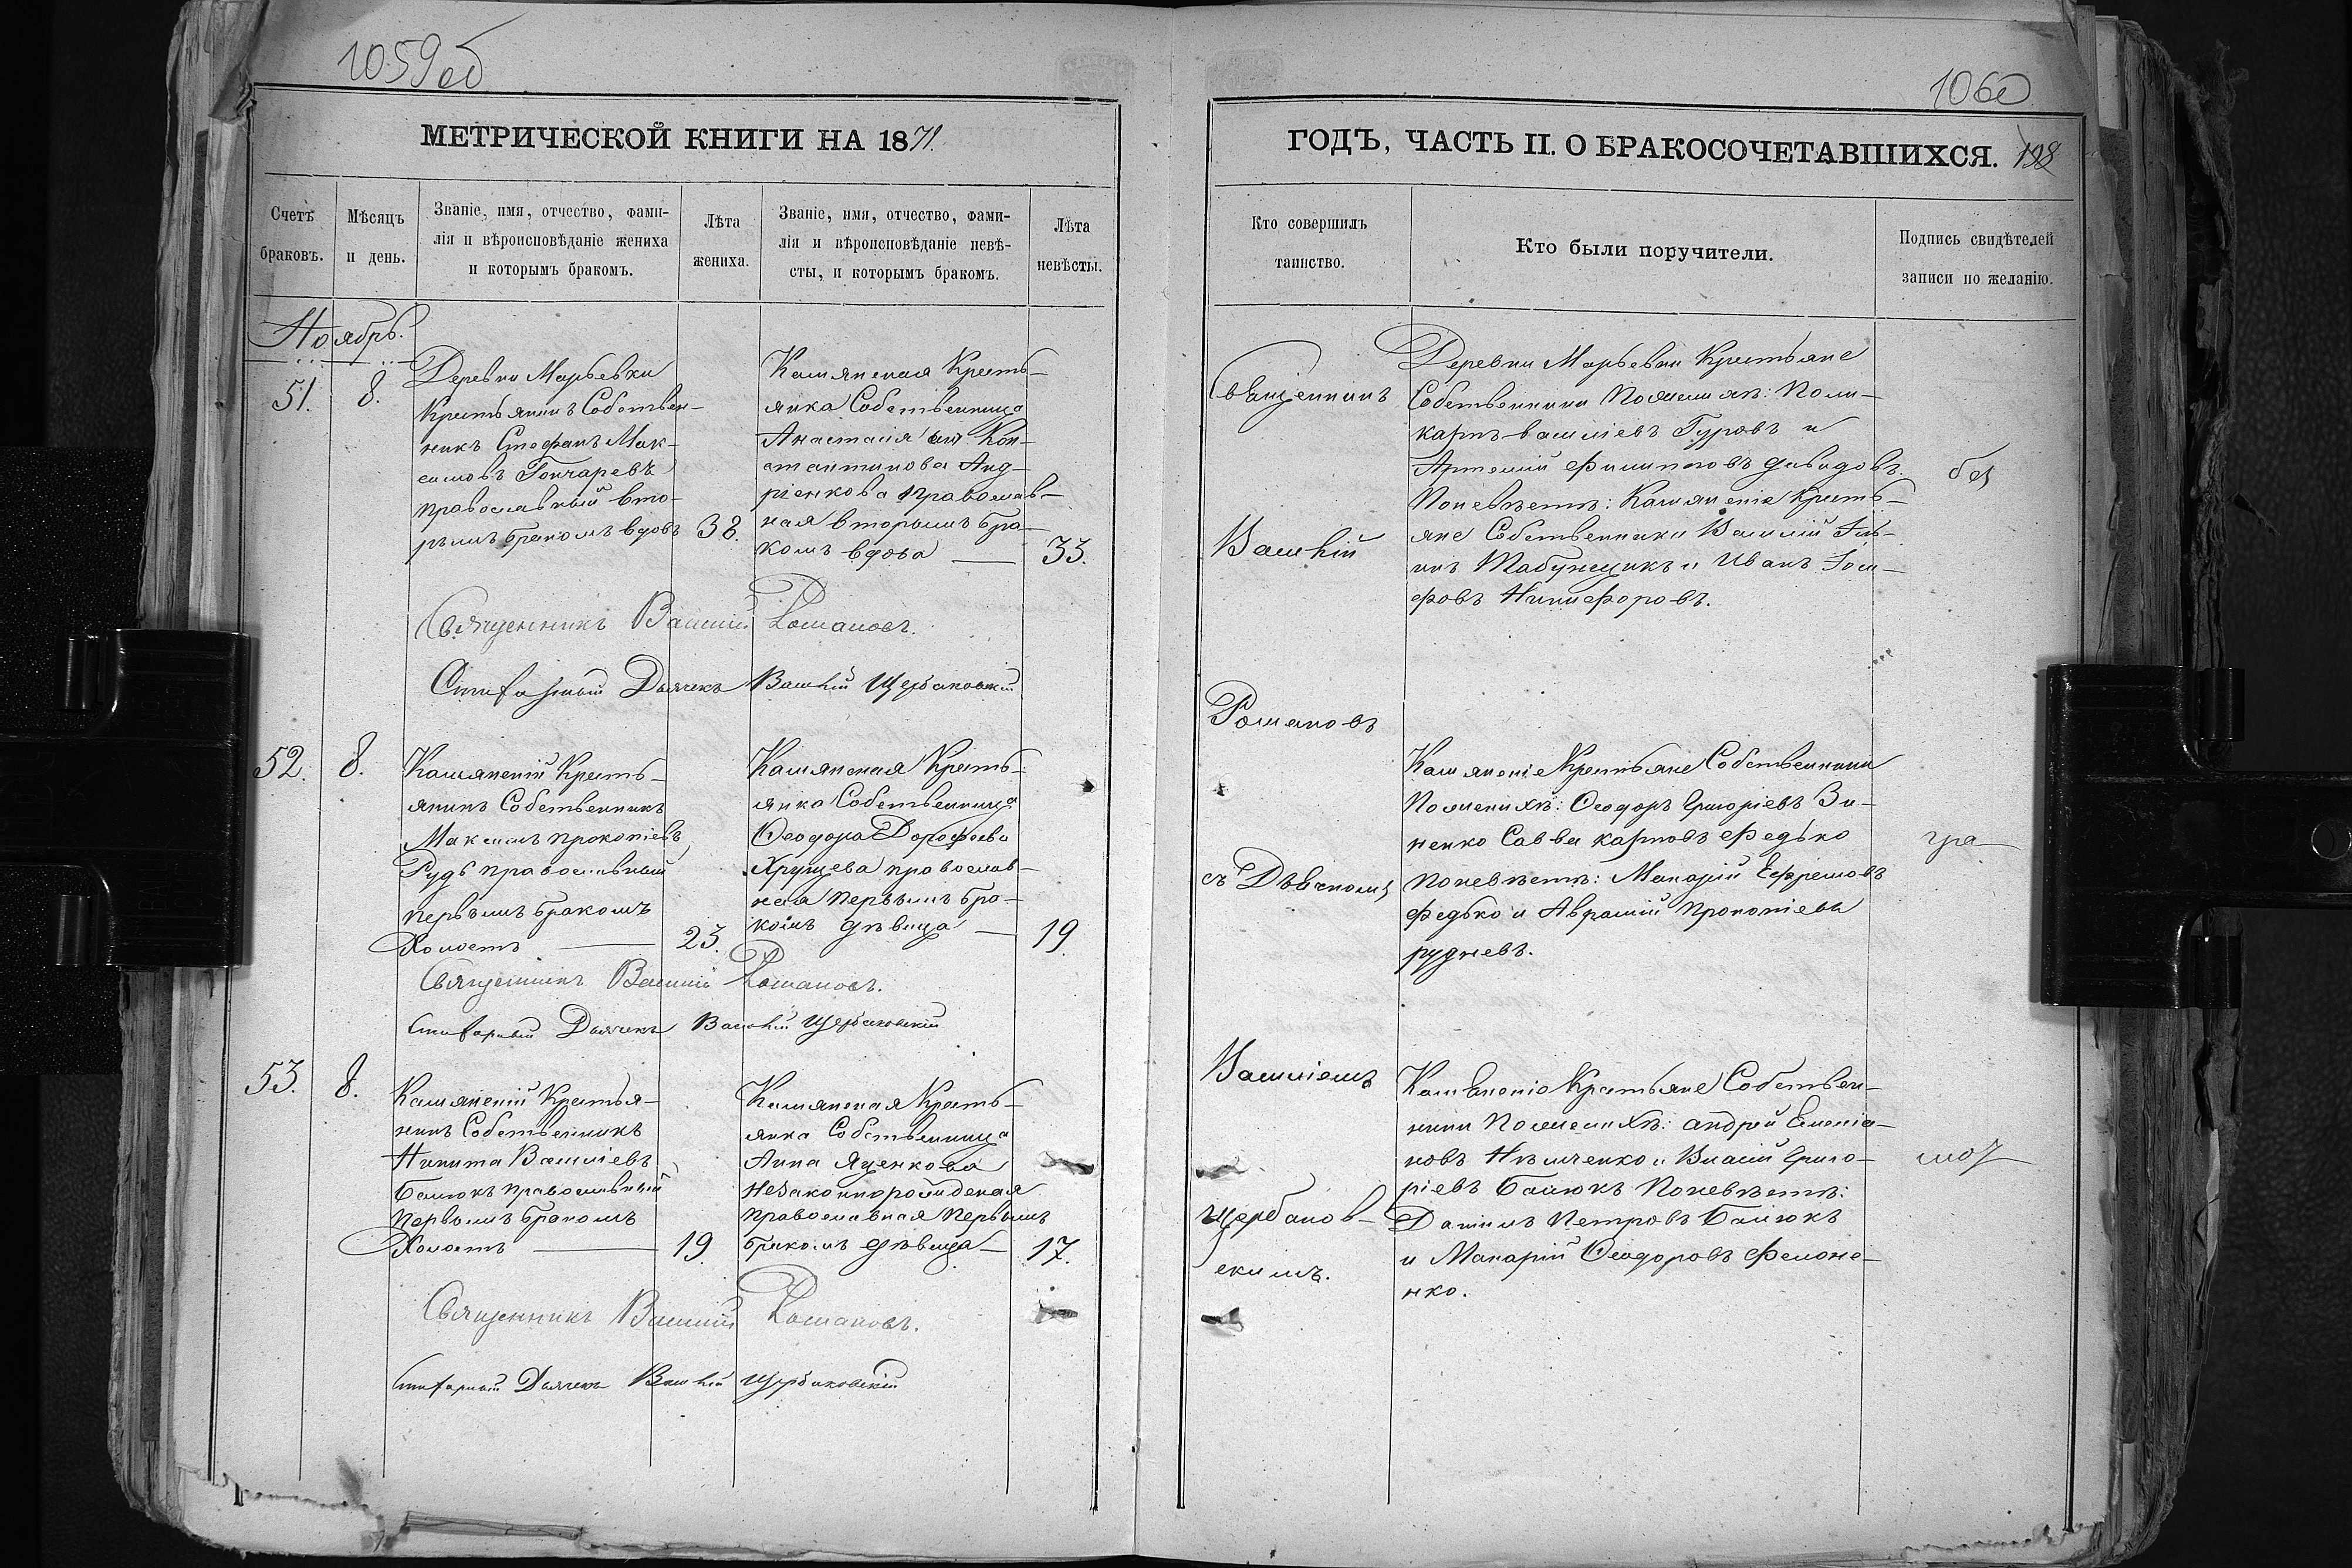 1059об
МЕТРИЧЕСКОЙ КНИГИ НА 1871
Счетъ браковъ.
Мѣсяцъ и день.
Званіе, имя, отчество, фами-
лія и вѣроисповѣданіе жениха
и которымъ бракомъ.
Лѣта жениха.
Званіе, имя, отчество, фами-
лія и вѣроисповѣданіе невѣ-
сты, и которымъ бракомъ.
Лѣта невѣсты.
Ноябрь.
51. 8.
Деревни Марьевки
Крестьянинъ Собствен-
никъ Стефанъ Мак-
симовъ Гончаревъ
православный вто-
рымъ бракомъ вдовъ 38.
Камянская Кресть-
янка Собственница
Анастасія Кон-
стантинова Анд-
ріенкова православ-
ная вторымъ бра-
комъ вдова — 33.
Священникъ Василій Романовъ.
Стихарный Дьячекъ Василій Щербаковскій
52. 8.
Камянскій Кресть-
янинъ Собственникъ
Максимъ прокопіевъ
Рудь православный
первымъ бракомъ
Холостъ — 23.
Камянская Кресть-
янка Собственница
Ѳеодора Дорофеева
Хрущева православ-
ная первымъ бра-
комъ дѣвица — 19.
Священникъ Василій Романовъ.
Стихарный Дьячекъ Василій Щербаковскій
53. 8.
Камянскій Крестья-
нинъ Собственникъ
Никита Василіевъ
Байюкъ православный
первымъ бракомъ
Холостъ — 19.
Камянская Кресть-
янка Собственница
Анна Яценкова
незаконнорожденная
православная первымъ
бракомъ дѣвица — 17.
Священникъ Василій Романовъ.
Стихарный Дьячекъ Василій Щербаковскій
1060
ГОДЪ, ЧАСТЬ II. О БРАКОСОЧЕТАВШИХСЯ. 198
Кто совершилъ
таинство.
Кто были поручители.
Подпись свидѣтелей
записи по желанію.
Священникъ
Василій
Романовъ
съ Дьячкомъ
Василіемъ
Щербаков-
скимъ.
Деревни Марьевки Крестьяне
Собственники По женихѣ: Поли-
карпъ василіевъ Гуровъ и
Артемій Филиповъ давидовъ.
По невѣстѣ: Камянскіе Кресть-
яне Собственники Василій
Табунщикъ и Иванъ Іоси-
фовъ Никифоровъ.
Камянскіе Крестьяне Собственники
По женихѣ: Ѳеодоръ Григоріевъ Зи-
ненко Савва карповъ Федько
По невѣстѣ: Макарій Ефремовъ
Федько и Аврамій Прокопіевъ
рудневъ.
Камянскіе Крестьяне Собствен-
ники По женихѣ: андрей Емелія-
новъ Нѣмченко и Власій Григо-
ріевъ Байюкъ По невѣстѣ:
Даніилъ Петровъ Байюкъ
и Макарій Ѳеодоровъ Филоне-
нко.
без
гра
мот